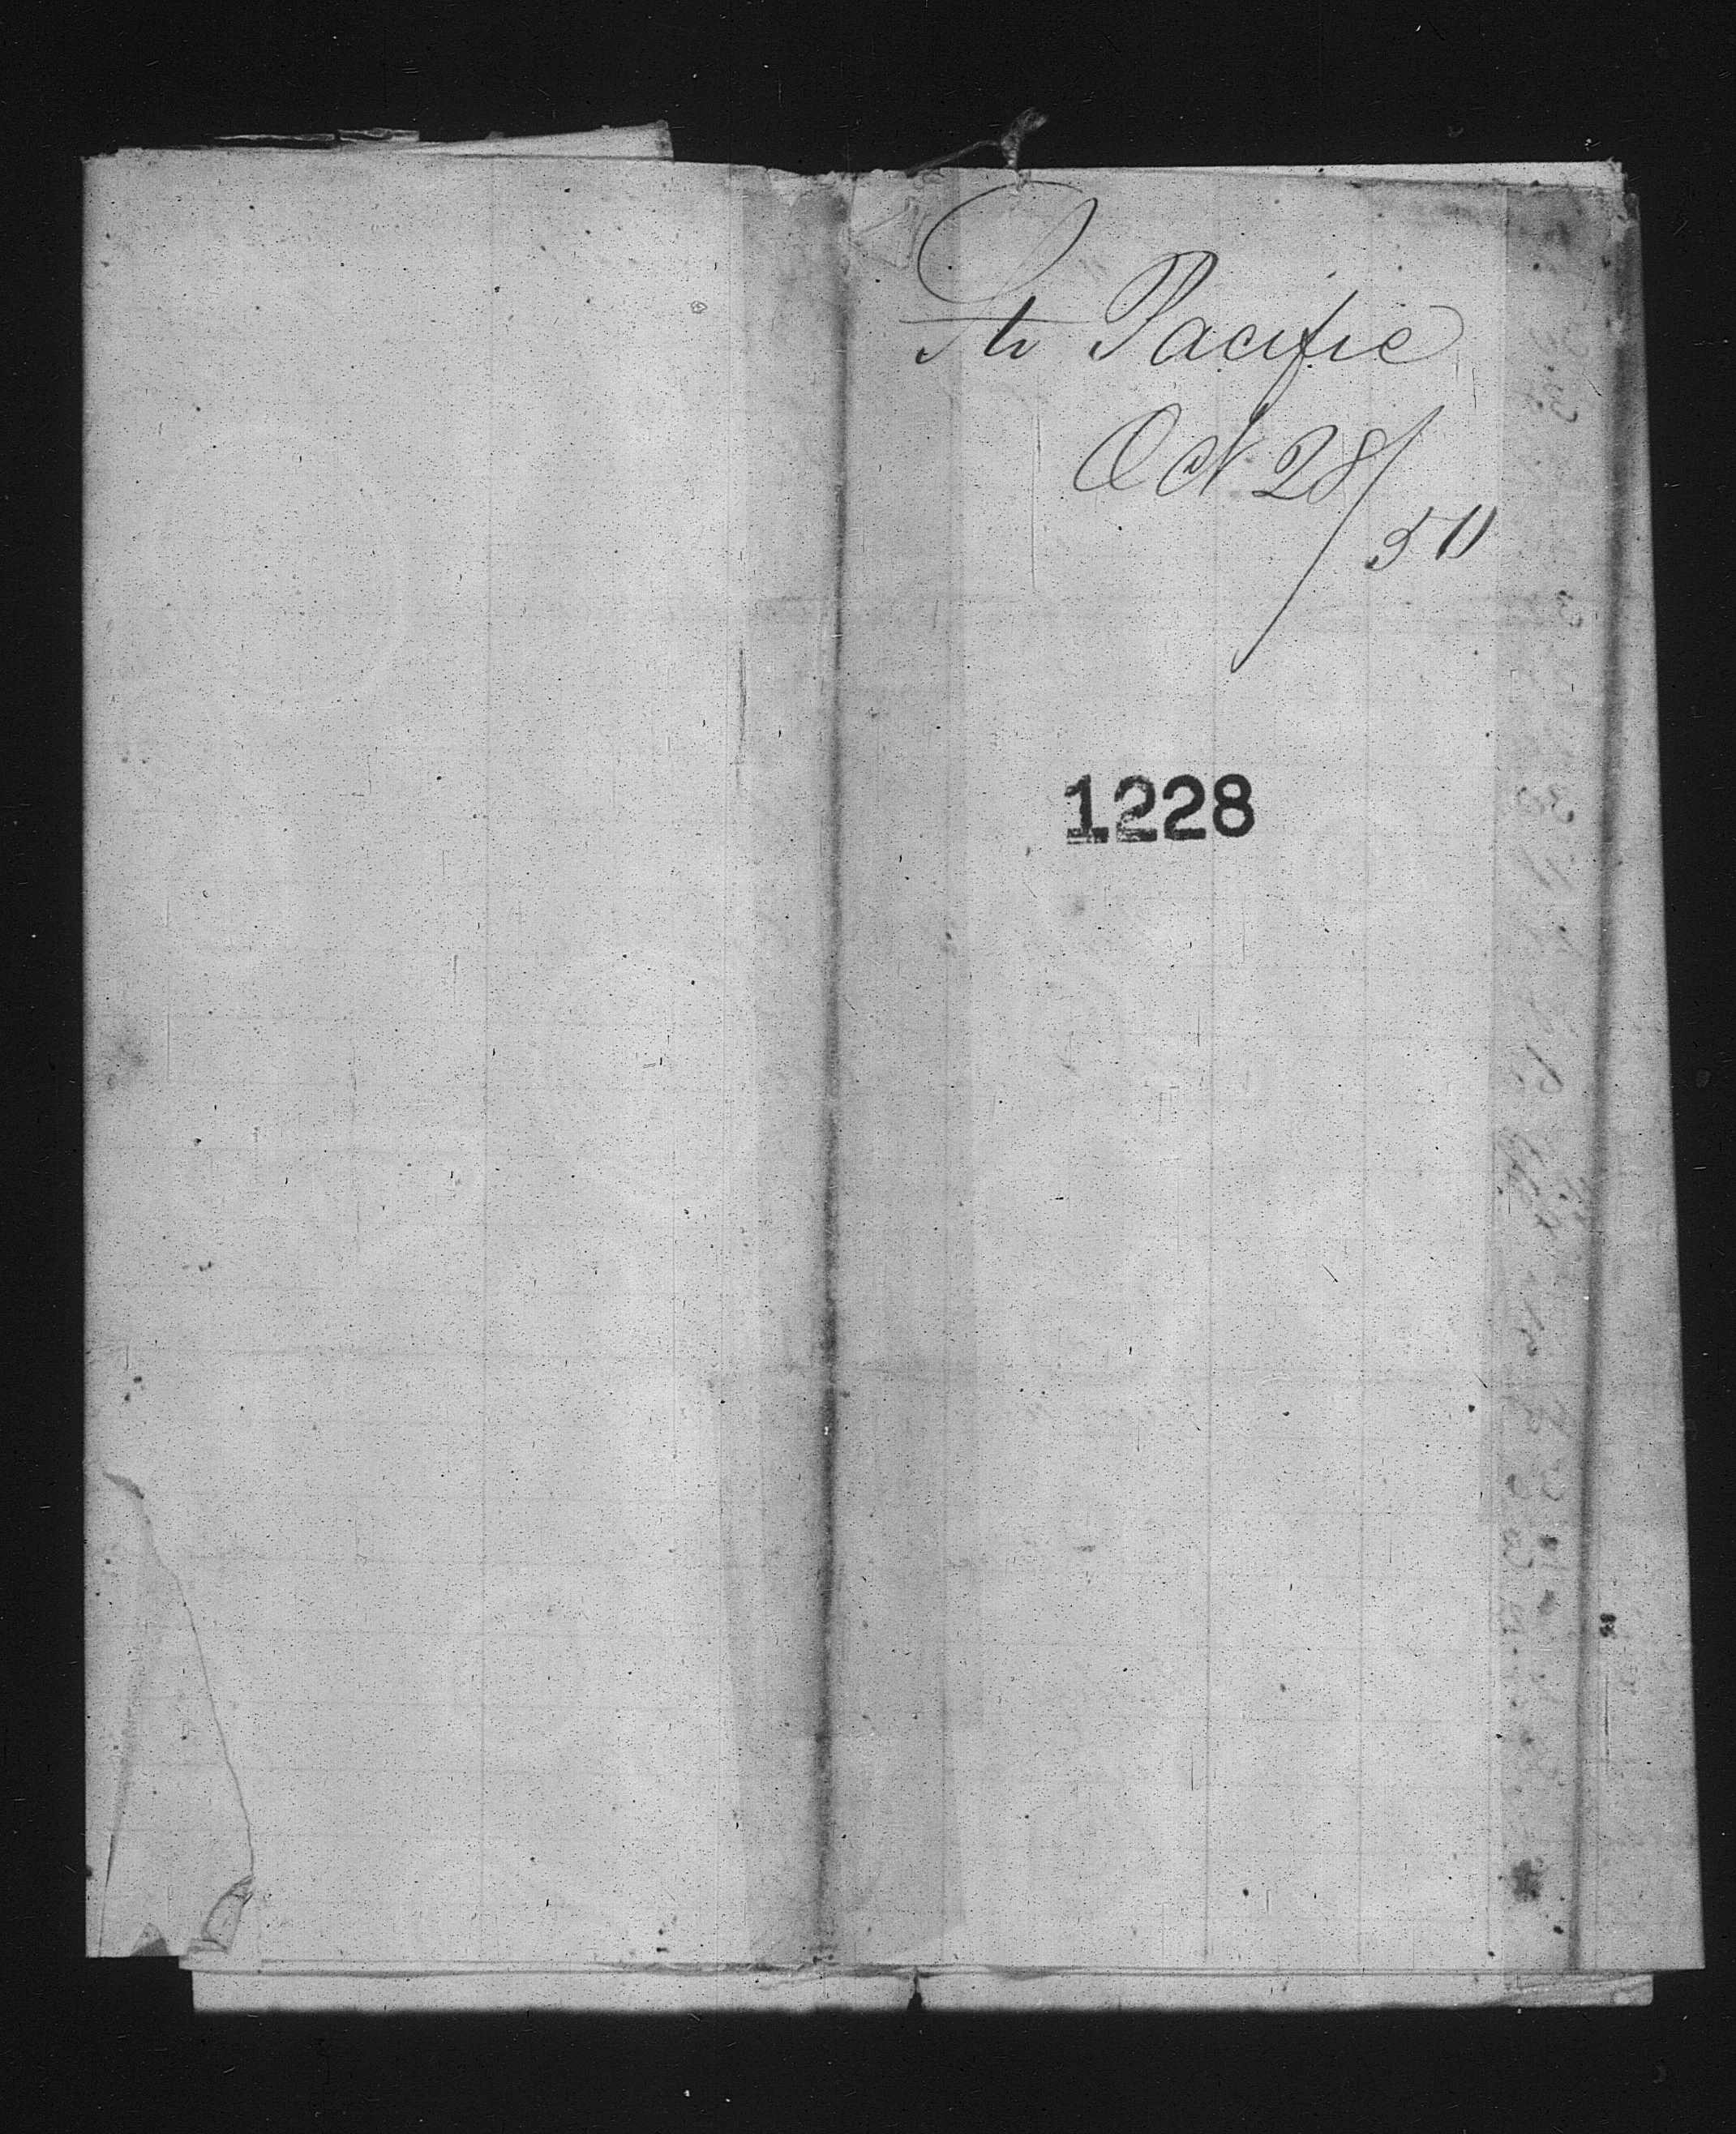 Str Pacific
Oct 28/
50
1228